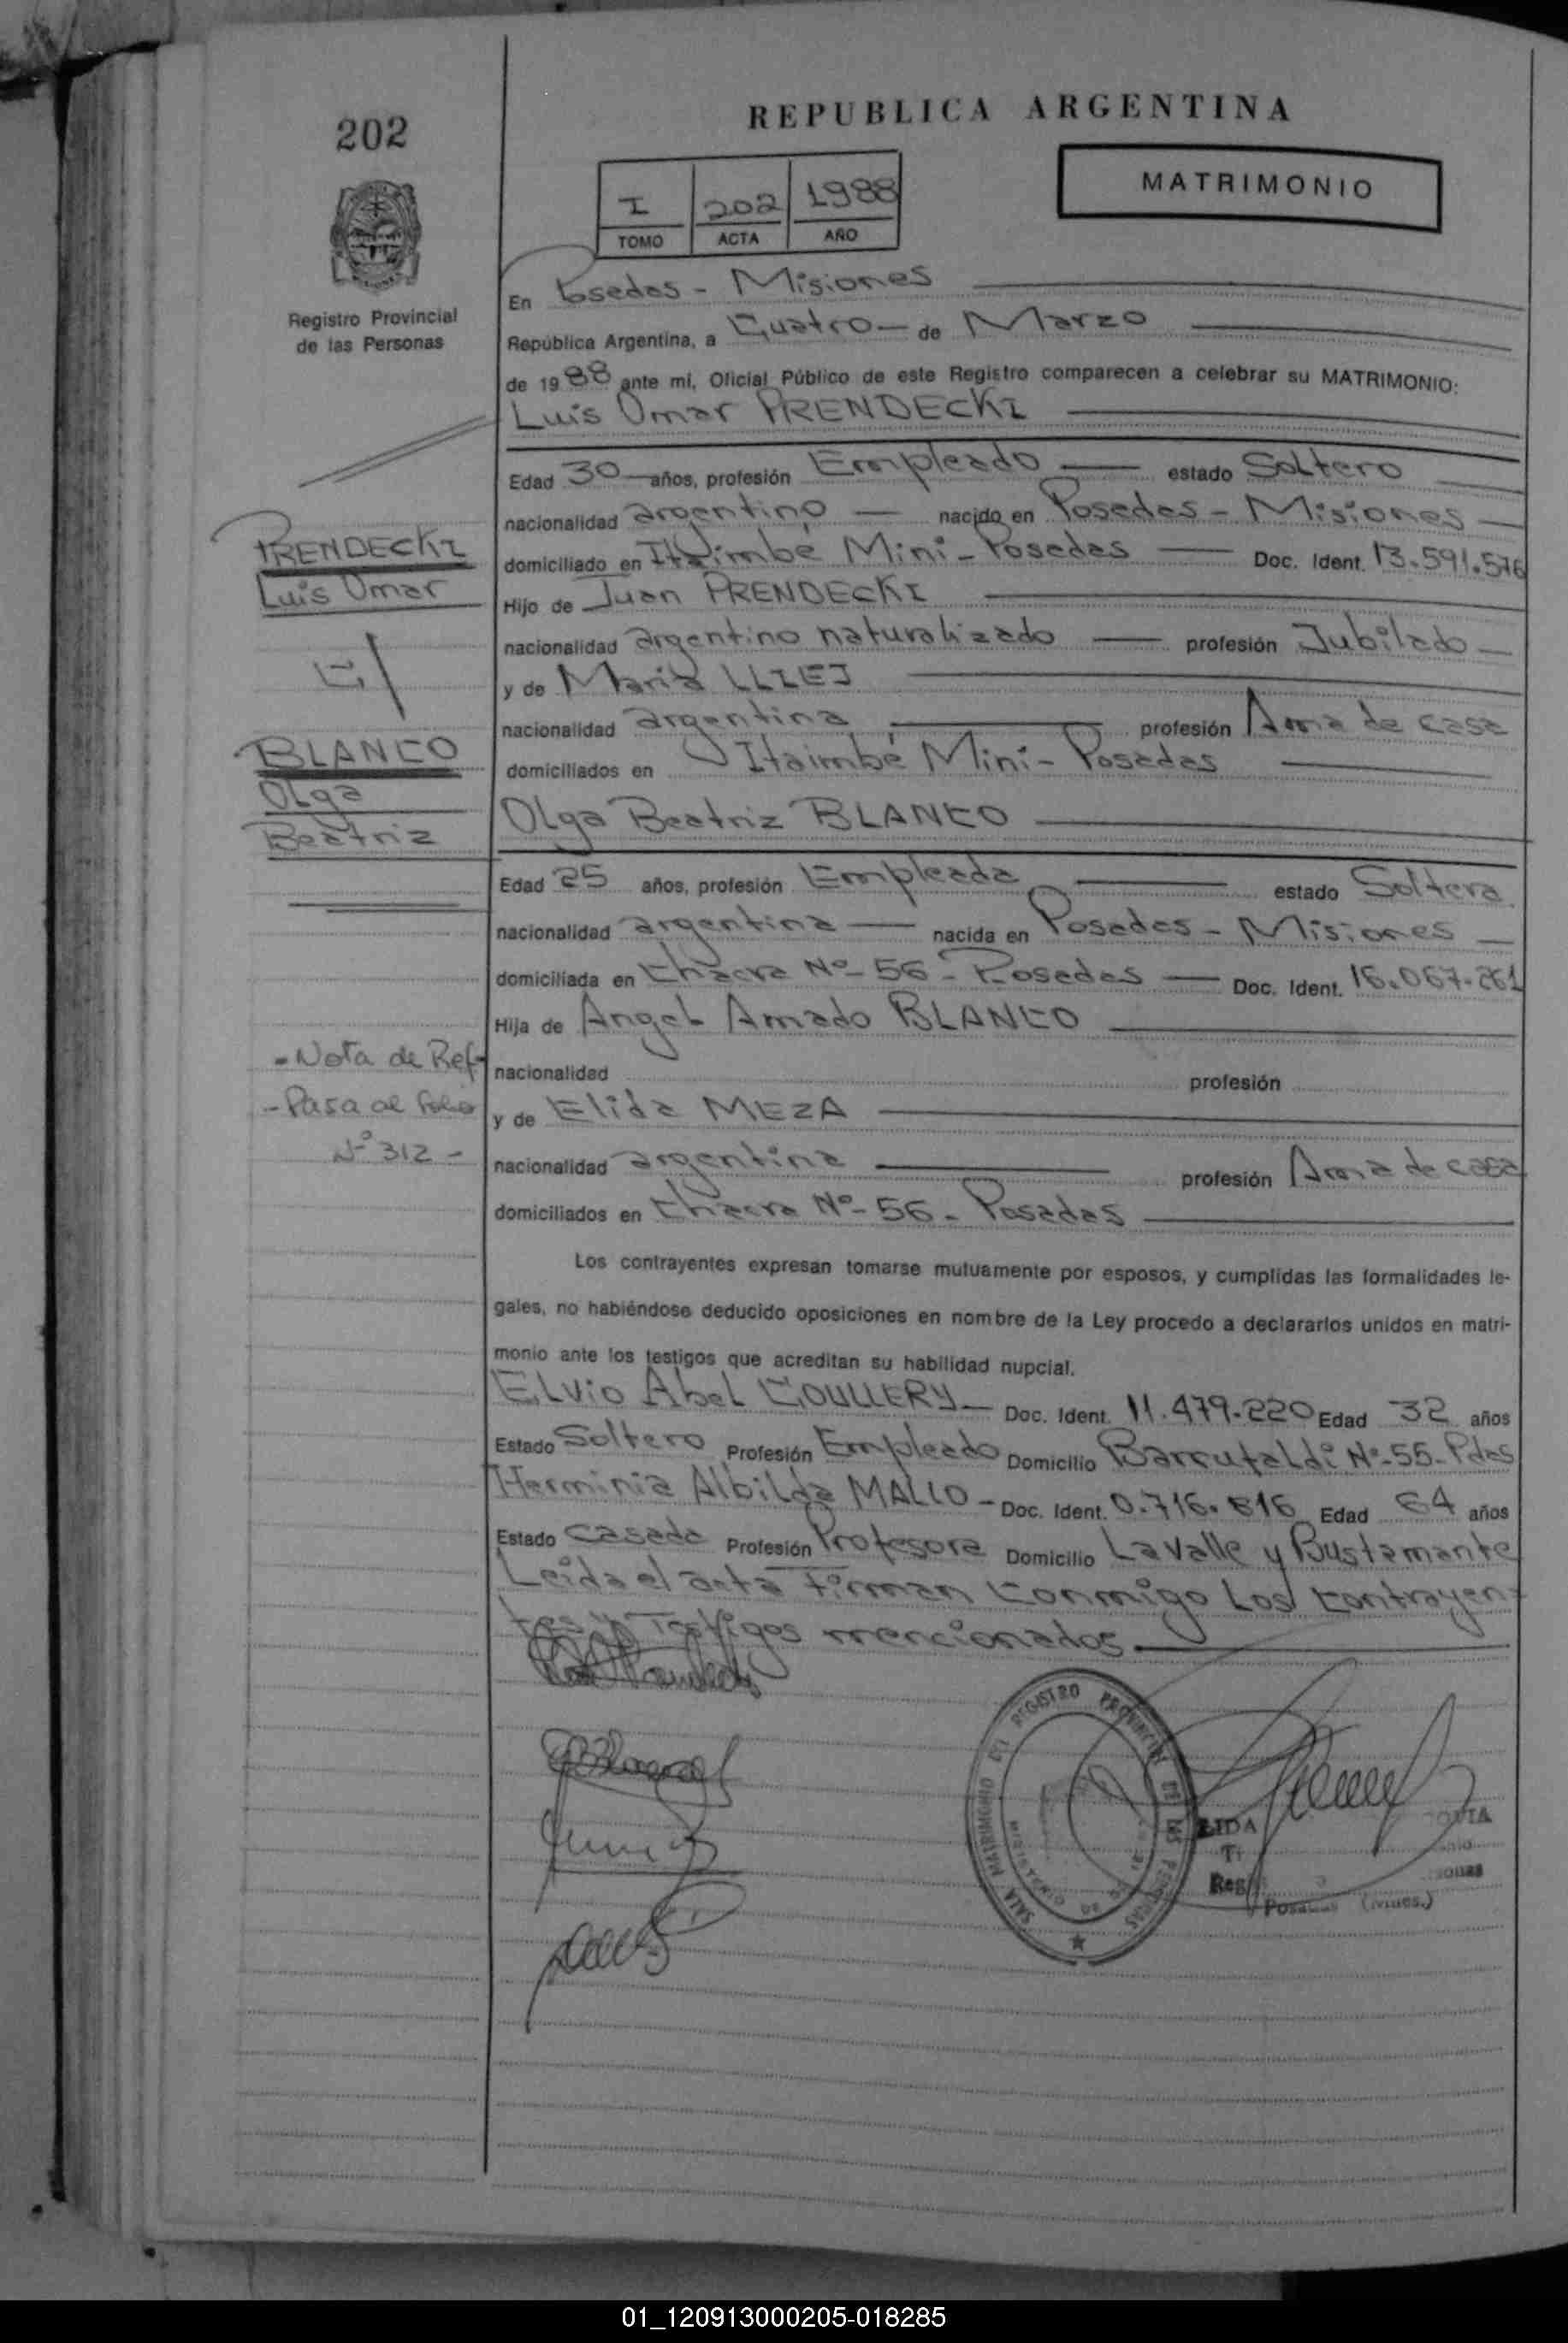 202
REPUBLICA ARGENTINA
MATRIMONIO
I 202 1988
TOMO ACTA AÑO
Registro Provincial
de las Personas
En Posadas - Misiones
República Argentina, a Cuatro de Marzo
de 1988 ante mí, Oficial Público de este Registro comparecen a celebrar su MATRIMONIO:
Luis Omar PRENDECKI
Edad 30 años, profesión Empleado estado Soltero
nacionalidad argentino nacido en Posadas - Misiones
domiciliado en Itaimbé Mini - Posadas Doc. Ident. 13.591.576
Hijo de Juan PRENDECKI
nacionalidad argentino naturalizado profesión Jubilado
y de María LLIEJ
nacionalidad argentina profesión Ama de casa
domiciliados en Itaimbé Mini - Posadas
Olga Beatriz BLANCO
Edad 25 años, profesión Empleada estado Soltera
nacionalidad argentina nacida en Posadas - Misiones
domiciliada en Chacra Nº 56 - Posadas Doc. Ident. 16.067.261
Hija de Angel Amado BLANCO
nacionalidad profesión
y de Elida MEZA
nacionalidad argentina profesión Ama de casa
domiciliados en Chacra Nº 56 - Posadas
Los contrayentes expresan tomarse mutuamente por esposos, y cumplidas las formalidades le-
gales, no habiéndose deducido oposiciones en nombre de la Ley procedo a declararlos unidos en matri-
monio ante los testigos que acreditan su habilidad nupcial.
Elvio Abel COULLERY Doc. Ident. 11.479.220 Edad 32 años
Estado Soltero Profesión Empleado Domicilio Nº 55 - Pdas
Herminia Albilda MALLO - Doc. Ident. 0.716.816 Edad 64 años
Estado Casada Profesión Profesora Domicilio Lavalle y Bustamante
Leida el acta firman conmigo los contrayen-
tes y Testigos mencionados
PRENDECKI
Luis Omar
C/
BLANCO
Olga
Beatriz
- Nota de Ref-
- Pasa al folio
Nº 312 -
SALA MATRIMONIO DEL REGISTRO PROVINCIAL DE LAS PERSONAS
LIDA
Reg
Posadas (Mnes.)
01_120913000205-018285